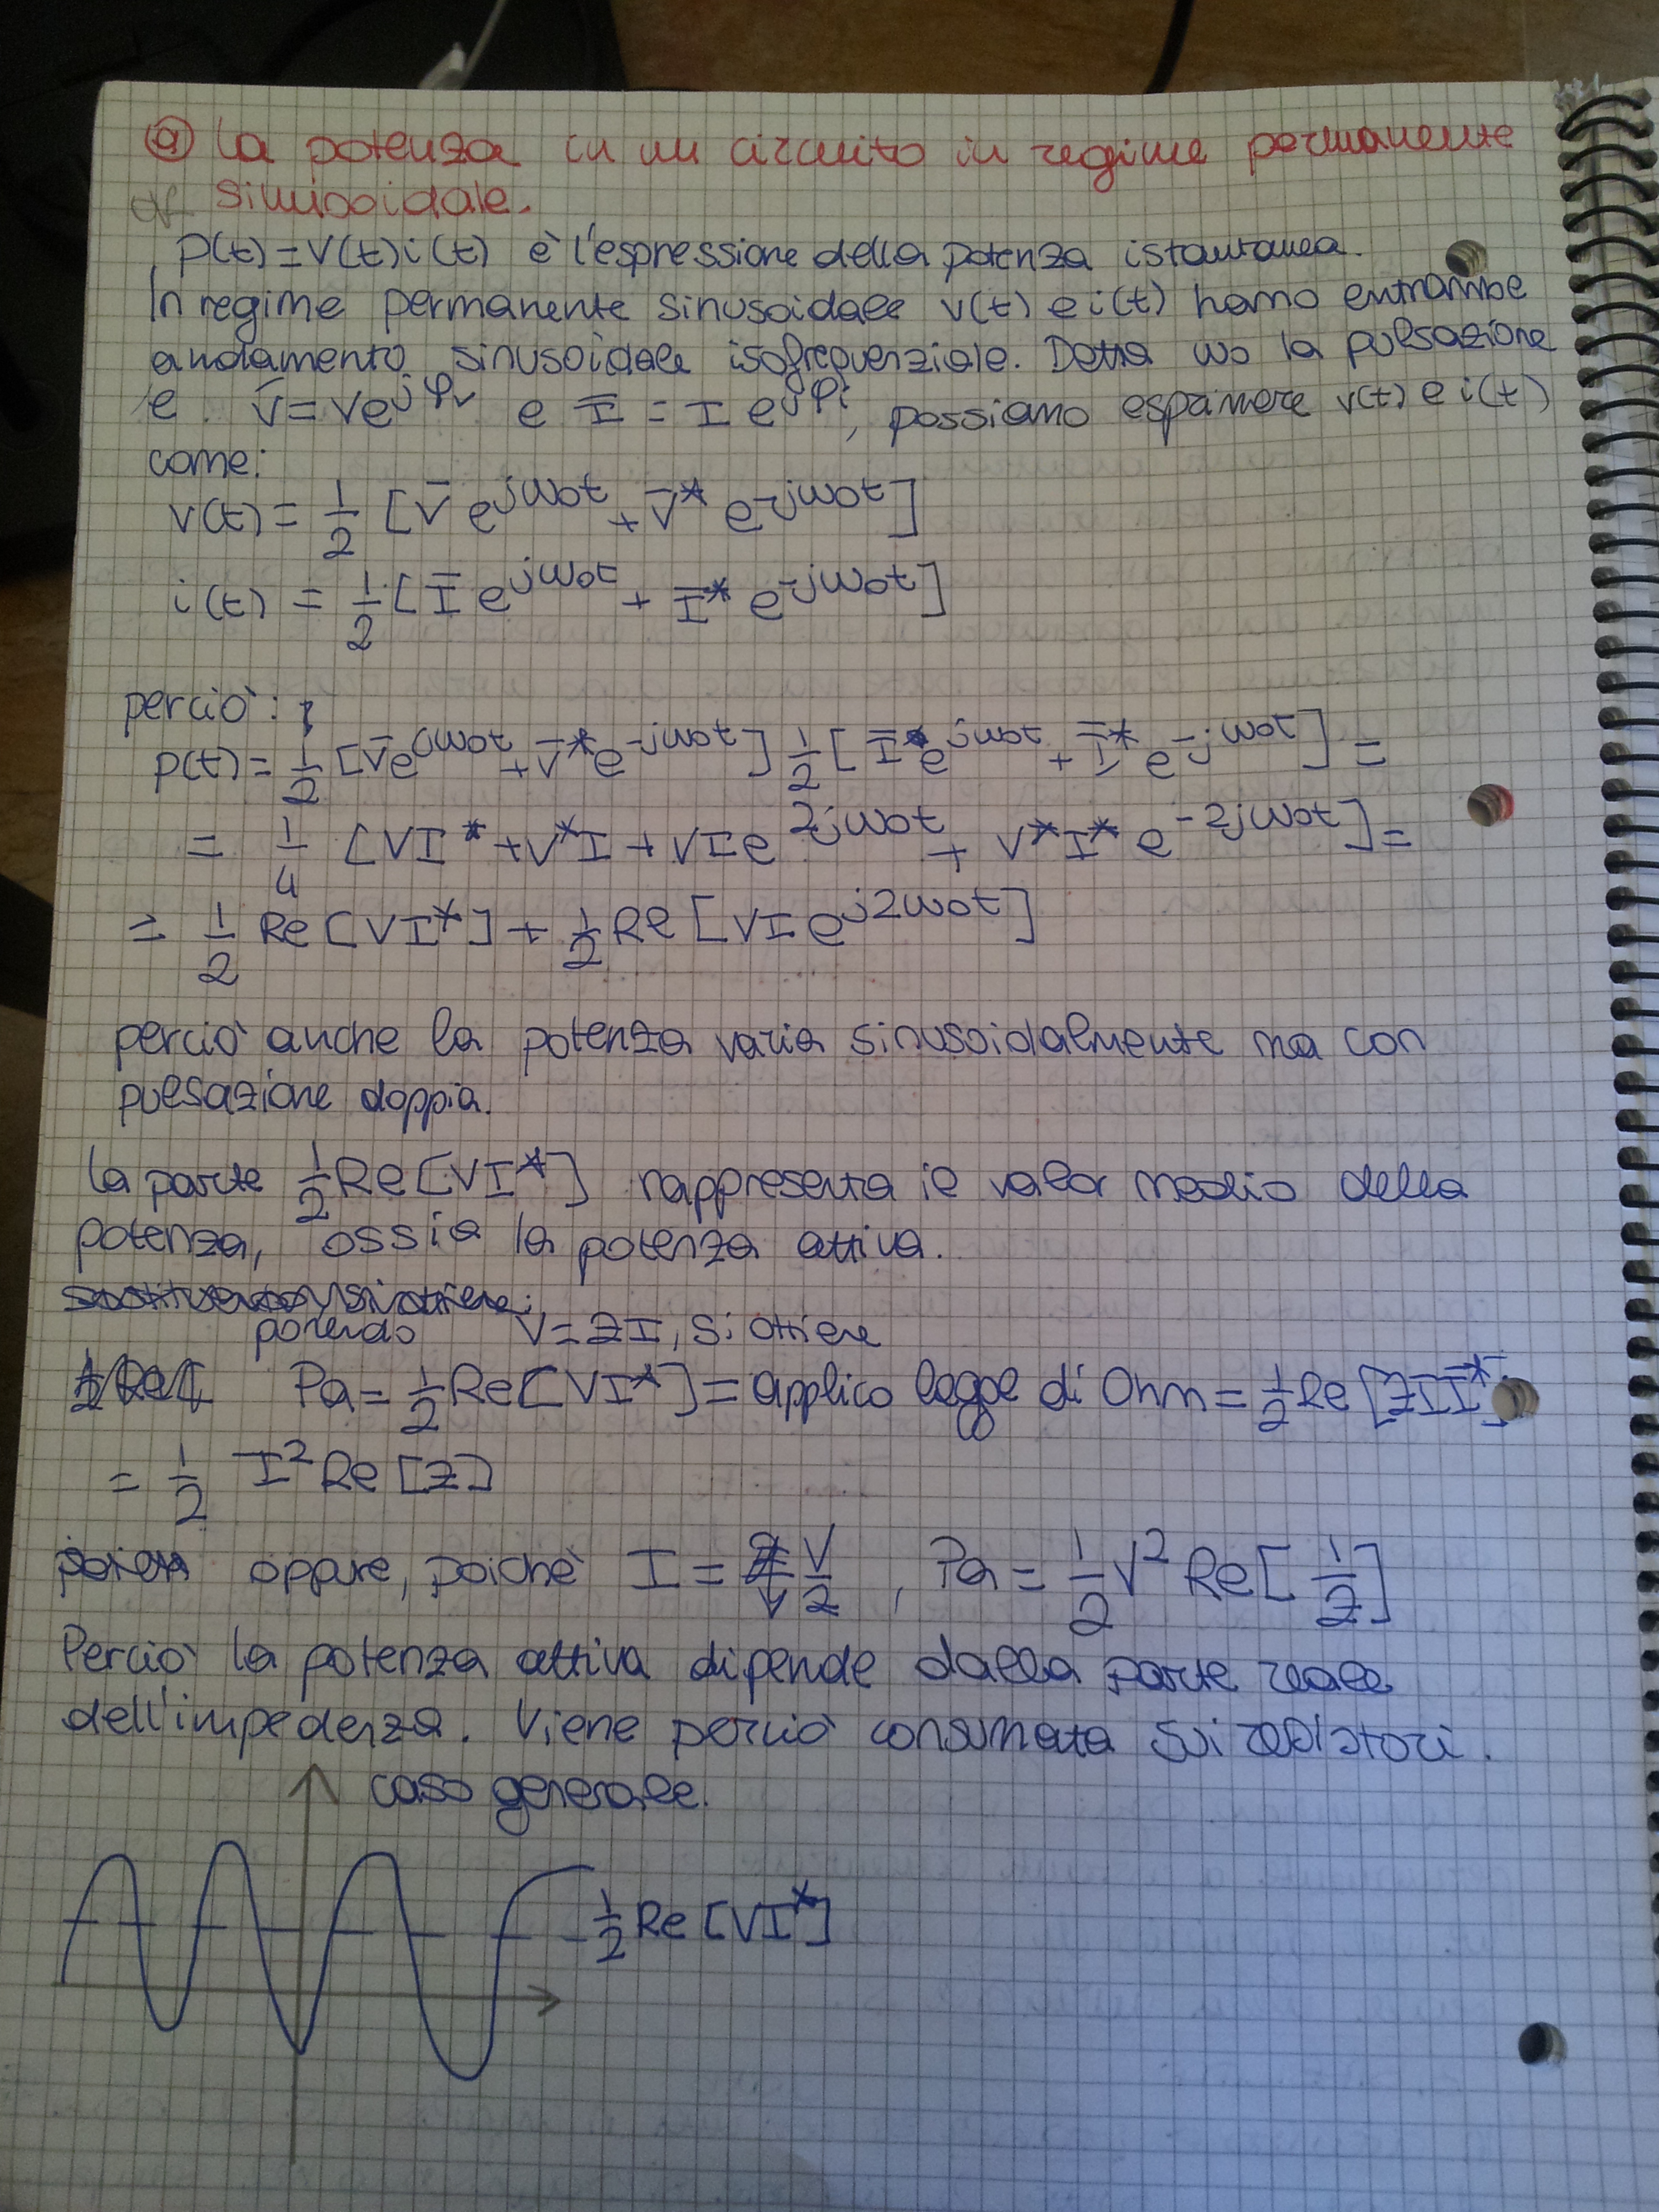 ⓐ La potenza in un circuito in regime permanente
sinusoidale.
p(t)=V(t)i(t) è l'espressione della potenza istantanea.
In regime permanente sinusoidale v(t) e i(t) hanno entrambe
andamento sinusoidale isofrequenziale. Detta ω0 la pulsazione
e V̄=Ve^jφv e Ī = I e^jφi, possiamo esprimere v(t) e i(t)
come:
v(t) = 1/2 [V̄ e^jω0t + V̄* e^-jω0t]
i(t) = 1/2 [Ī e^jω0t + Ī* e^-jω0t]
perciò:
p(t) = 1/2 [V̄e^jω0t + V̄*e^-jω0t] 1/2 [Ī e^jω0t + Ī* e^-jω0t] =
= 1/4 [VI* + V*I + VIe^2jω0t + V*I* e^-2jω0t] =
= 1/2 Re[VI*] + 1/2 Re[VI e^j2ω0t]
perciò anche la potenza varia sinusoidalmente ma con
pulsazione doppia.
la parte 1/2 Re[VI*] rappresenta il valor medio della
potenza, ossia la potenza attiva.
ponendo V=ZI, si ottiene
Pa = 1/2 Re[VI*] = applico legge di Ohm = 1/2 Re[ZĪĪ*]
= 1/2 I² Re[Z]
oppure, poichè I = V/Z , Pa = 1/2 V² Re[1/Z]
Perciò la potenza attiva dipende dalla parte reale
dell'impedenza. Viene perciò consumata sui resistori.
caso generale.
1/2 Re[VI*]